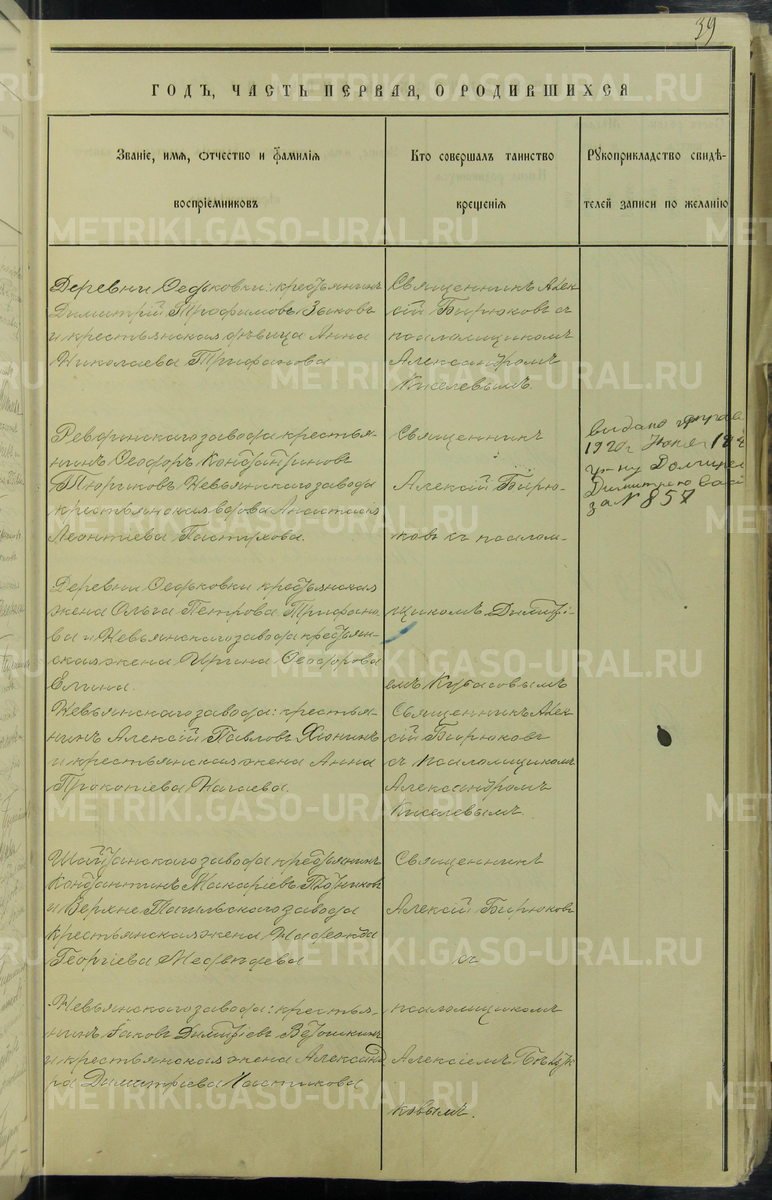 39
ГОДЪ, ЧАСТЬ ПЕРВАЯ, О РОДИВШИХСЯ
Званіе, имя, отчество и фамилія
воспріемниковъ
Кто совершалъ таинство
крещенія
Рукоприкладство свидѣ-
телей записи по желанію
Деревни Федьковки: крестьянинъ
Димитрій Трофимовъ Зыковъ
и крестьянская дѣвица Анна
Николаева Трифанова
Священникъ Алек-
сій Бирюковъ съ
псаломщикомъ
Александромъ
Киселевымъ.
Ревдинскаго завода крестья-
нинъ Ѳеодоръ Константиновъ
Невьянскаго завода
крестьянская вдова Анастасія
Леонтіева Пастухова.
Священникъ
Алексій Бирю-
ковъ съ псалом-
щикомъ Димитрі-
емъ Кубасовымъ
выдано
1920г
гр-ну
Димитрію
за № 857
Деревни Федьковки крестьянская
жена Ольга Петрова Трифано-
ва и Невьянскаго завода крестьян-
ская жена Ирина Ѳеодорова
Елина.
Невьянскаго завода: крестья-
нинъ Алексій Павловъ
и крестьянская жена Анна
Прокопіева Нагаева.
Священникъ Алек-
сій Бирюковъ
съ псаломщикомъ
Александромъ
Киселевымъ.
Шайтанскаго завода крестьянинъ
Константинъ Макаріевъ
и Верхне Тагильскаго завода
крестьянская жена Надежда
Георгіева Медвѣдева
Священникъ
Алексій Бирюковъ
съ
псаломщикомъ
Алексіемъ
ковымъ.
Невьянскаго завода: крестья-
нинъ Іаковъ Димитріевъ Ветошкинъ
и крестьянская жена Александ
ра Димитріева
METRIKI.GASO-URAL.RU